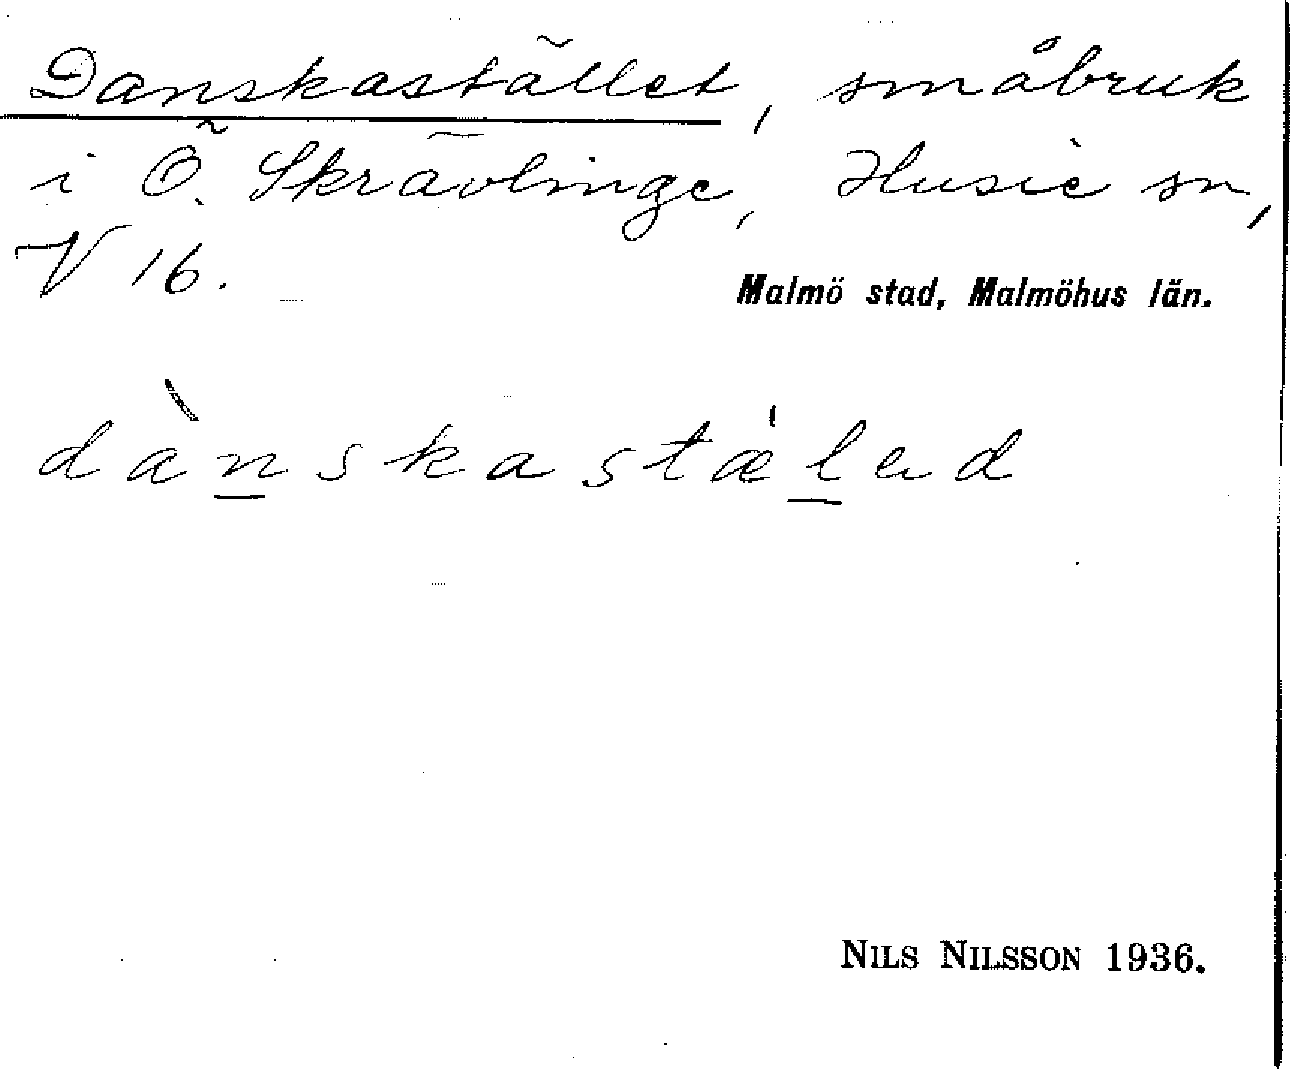 Danskastället, småbruk
i Ö. Skrävlinge, Husie sn,
V 16.
Malmö stad, Malmöhus län.
dànskastæ̍led
NILS NILSSON 1936.